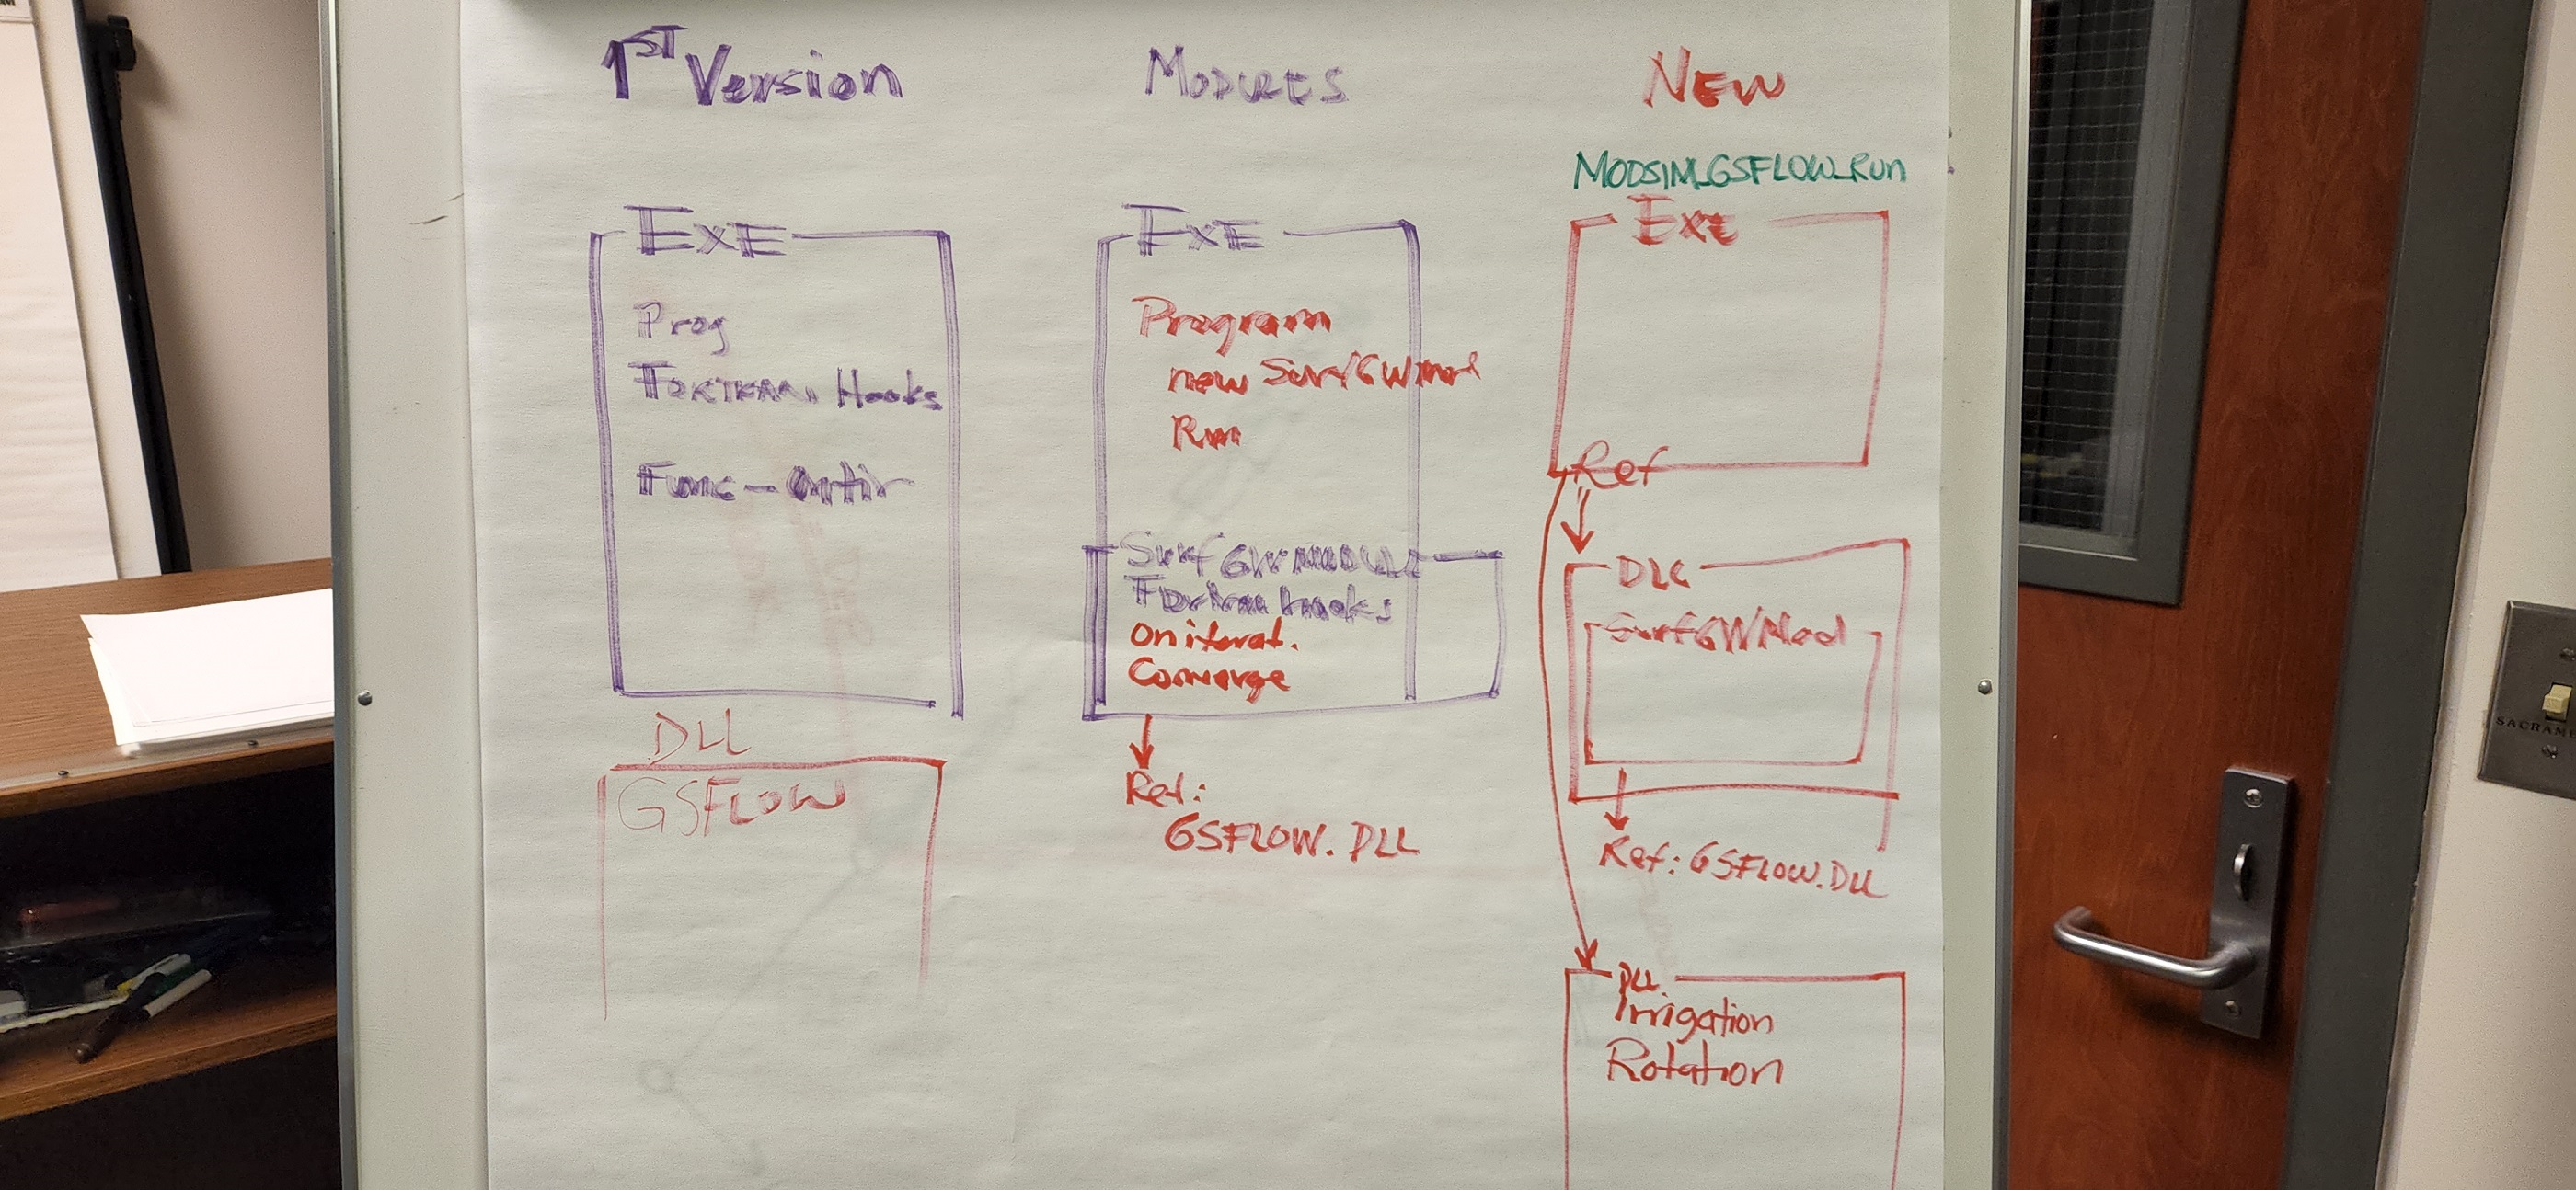 1ST Version
EXE
Prog
FORTRAN Hooks
Func -
DLL
GSFLOW
MODULES
EXE
Program
new SurfGWMod
Run
SurfGWModule
Fortran hooks
On iterat.
Converge
Ref:
GSFLOW.DLL
NEW
MODSIM_GSFLOW_Run
Exe
Ref
DLL
SurfGWMod
Ref: GSFLOW.DLL
DLL
Irrigation
Rotation
SACRAME